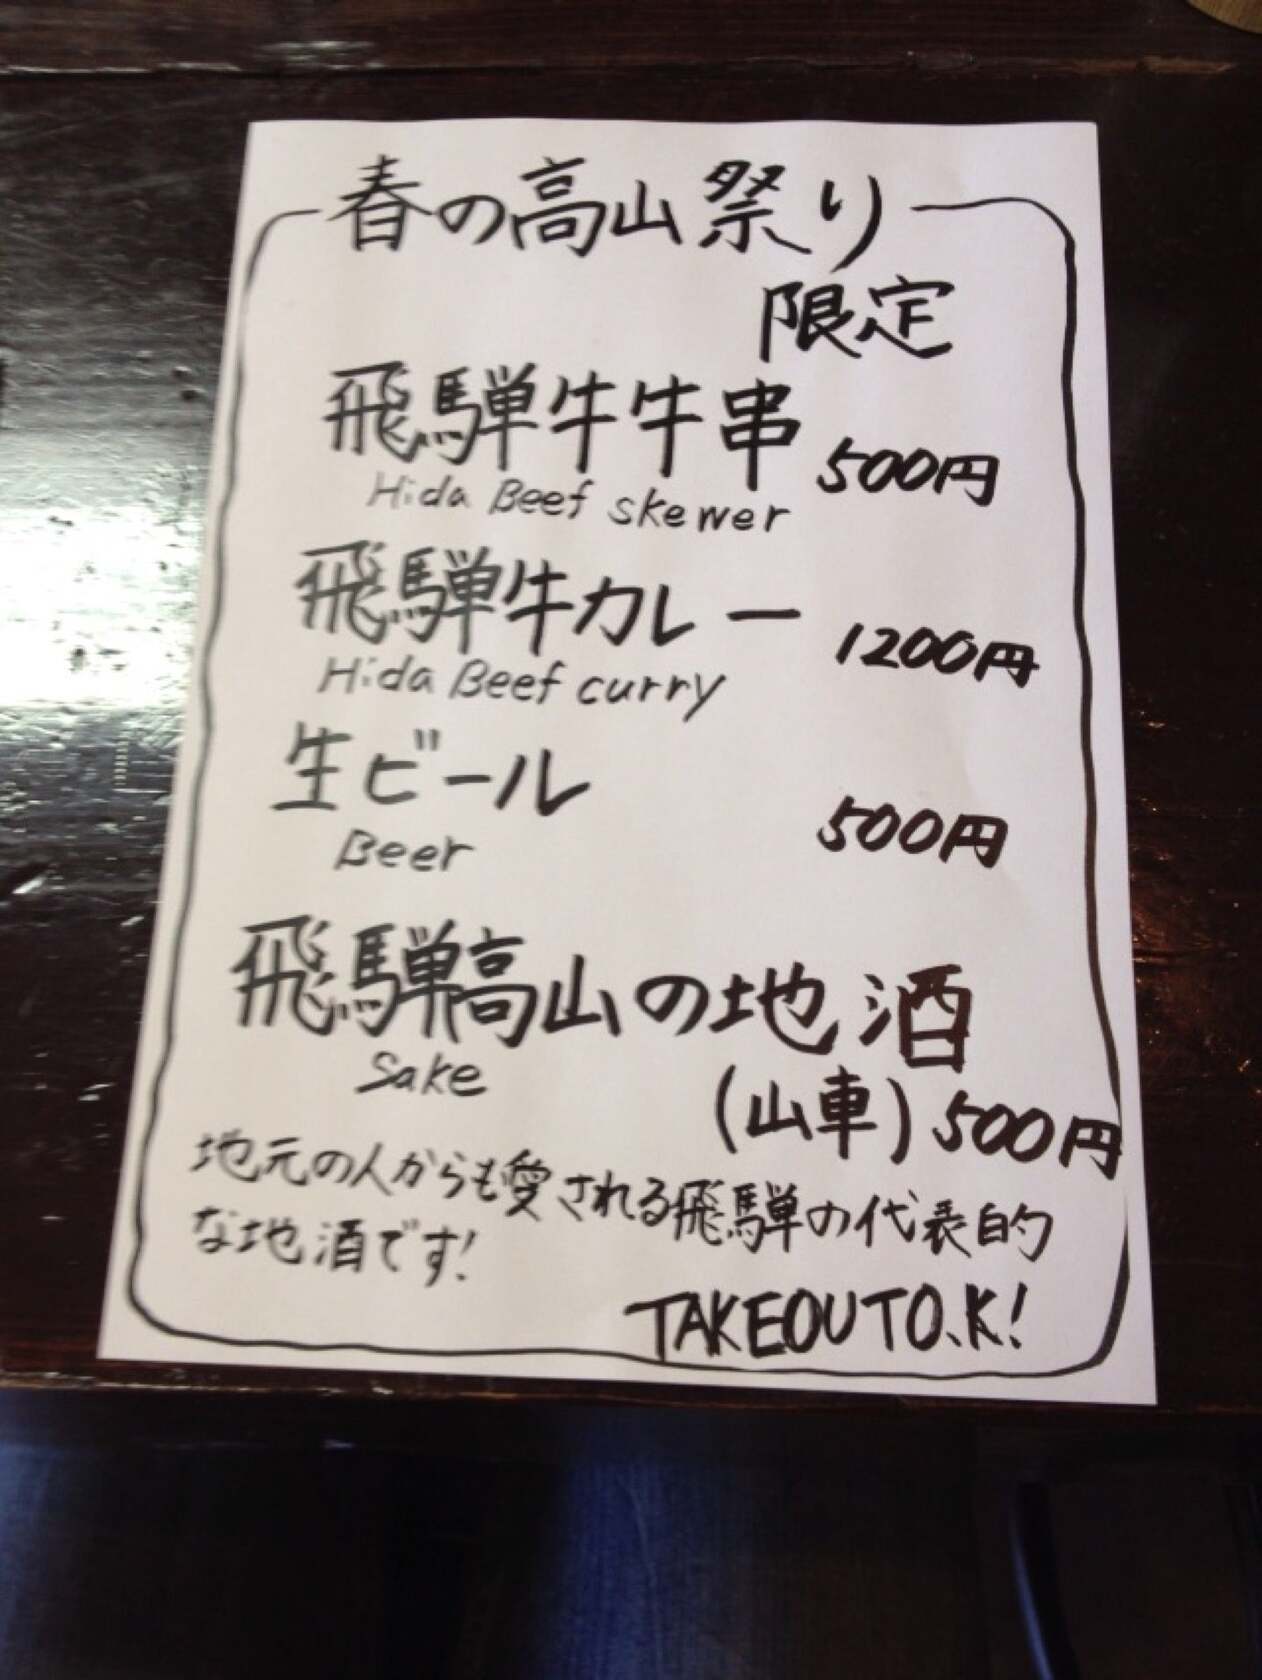 春の高山祭り
限定
飛騨牛牛串 500円
Hida Beef skewer
飛騨牛カレー 1200円
Hida Beef curry
生ビール 500円
Beer
飛騨高山の地酒
Sake (山車) 500円
地元の人からも愛される飛騨の代表的
な地酒です!
TAKEOUT O.K!